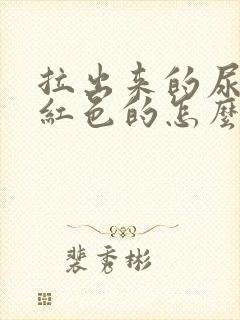 拉出来的尿
紅色的怎麼
裴秀彬